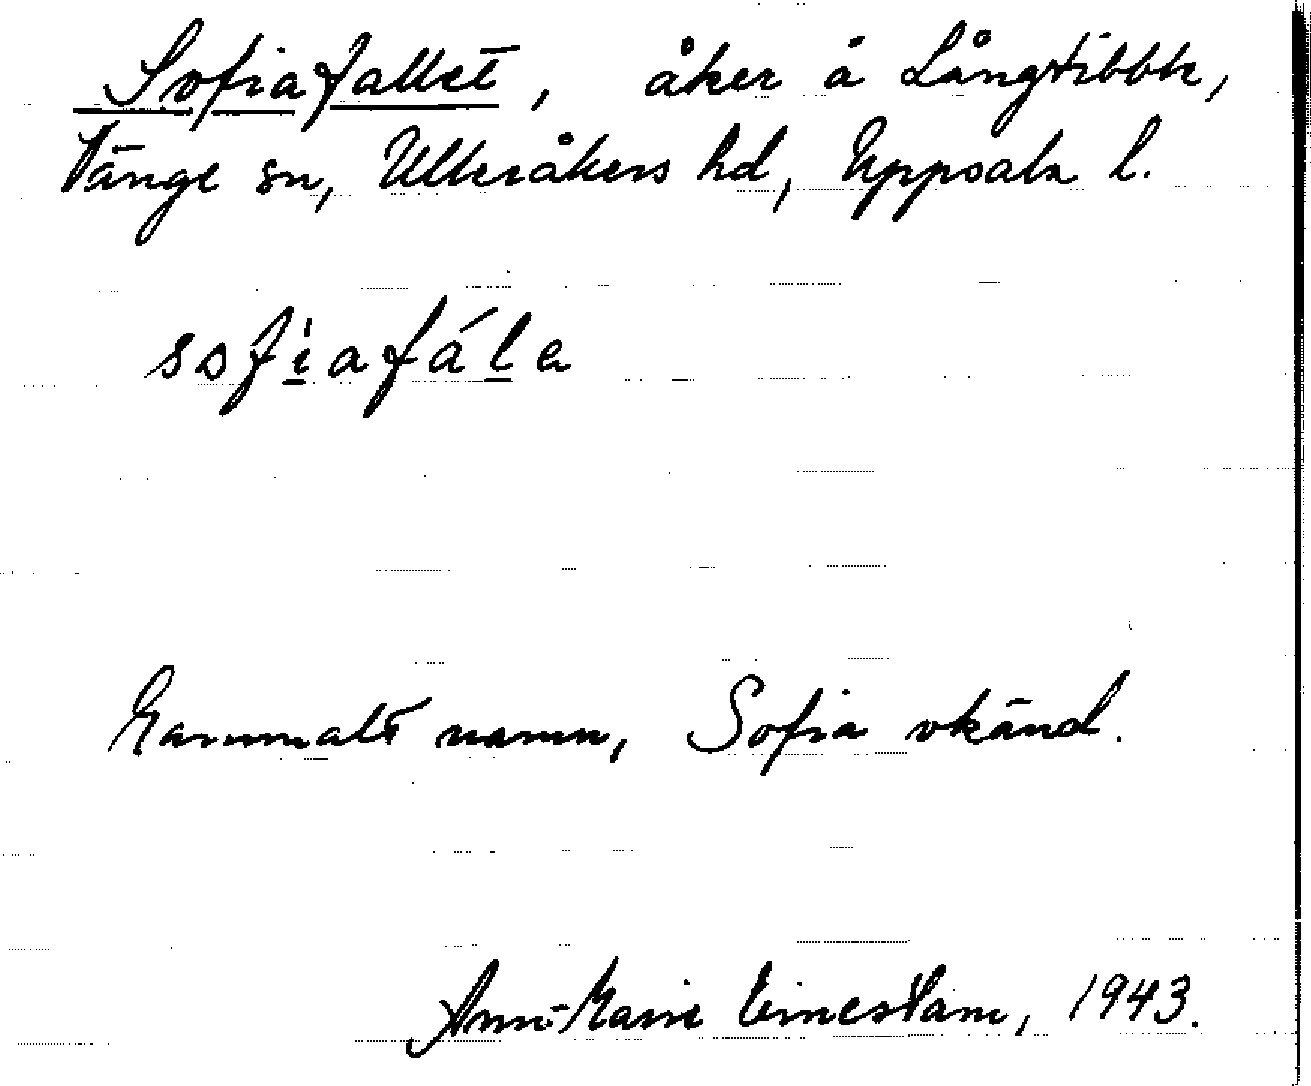 Sofiafallet, åker å Långtibble,
Vänge sn, Ulleråkers hd, Uppsala l.
sofiafála
Gammalt namn, Sofia okänd.
Ann-Marie Einestam, 1943.